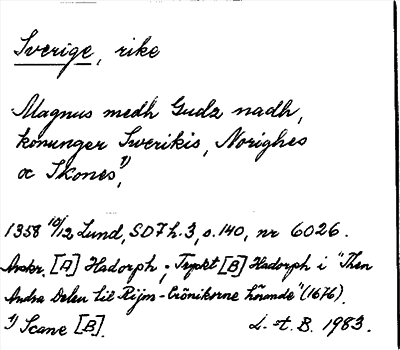 Sverige, rike
Magnus medh Gudz nadh,
konunger Swerikis, Norighes
oc Skones¹⁾,
1358 10/12 Lund, SD 7 h. 3, s. 140, nr 6026.
Avskr. [A] Hadorph; Tryckt [B] Hadorph i "Then
Andra Delen til Rijm-Crönikorne hörande" (1676).
1) Scane [B]. L. st. B. 1983.